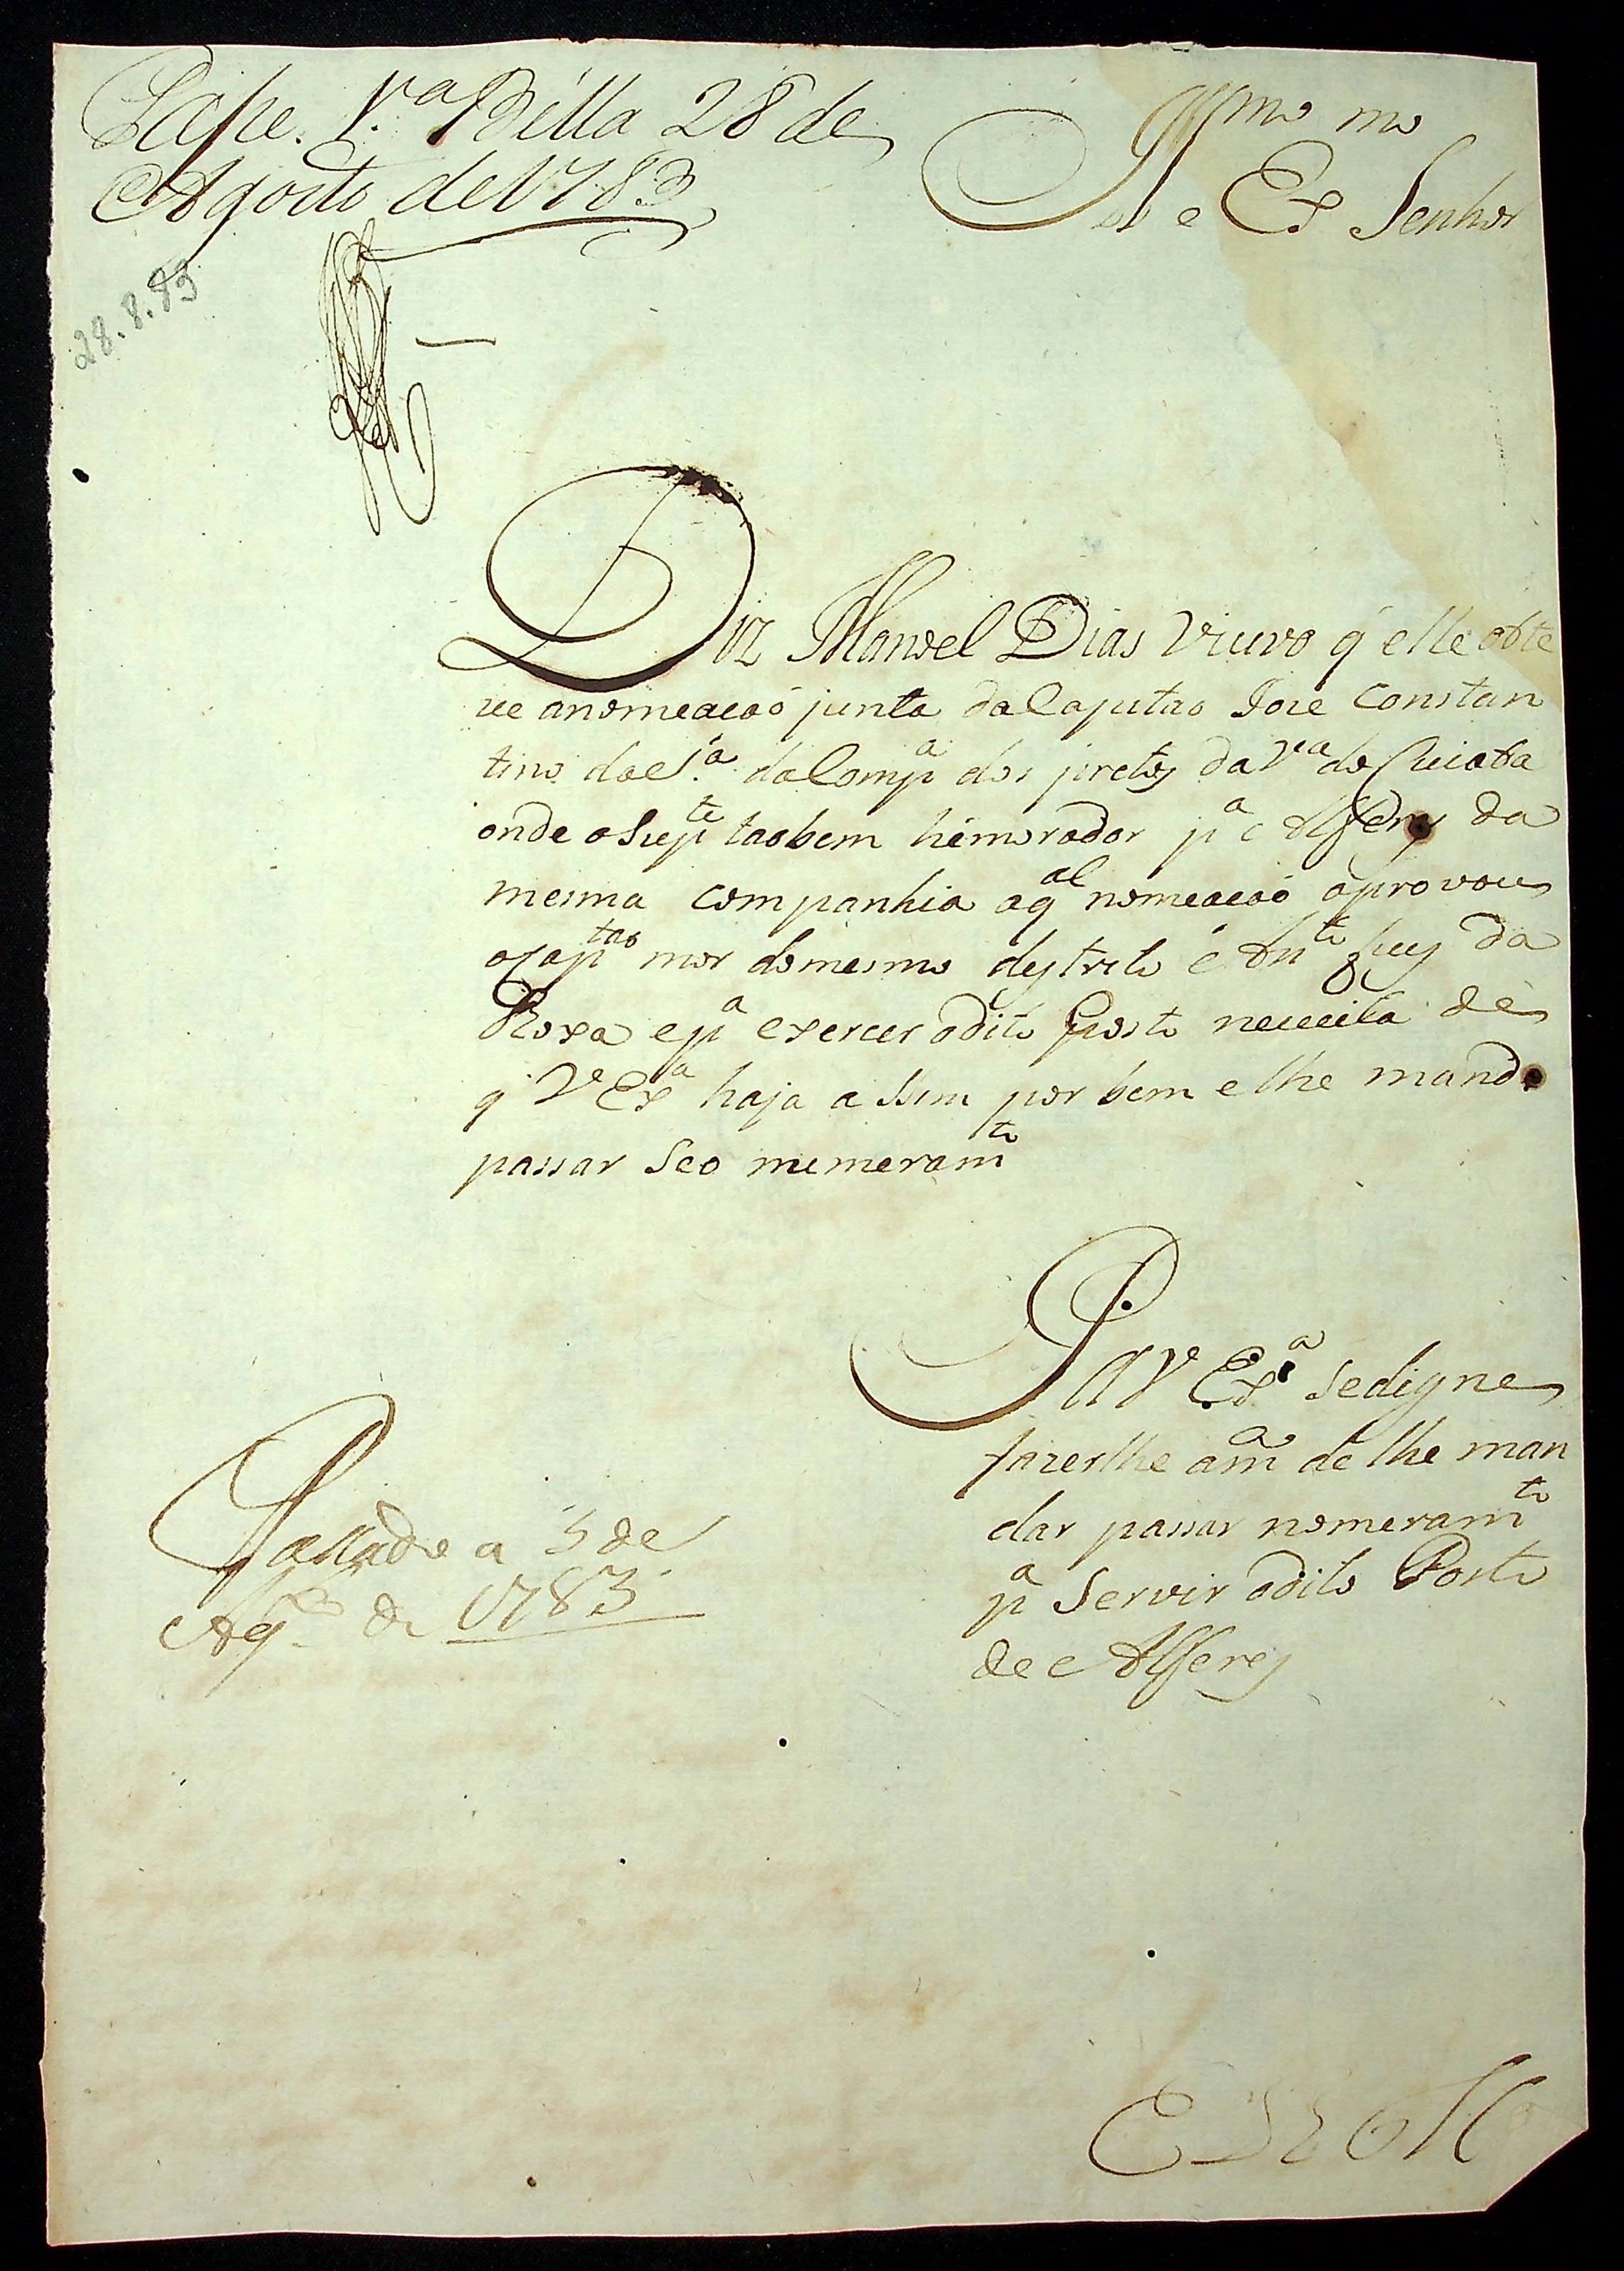 Passe. V.ª Bella 28 de
Agosto de 1783
28.8.83
Illmo e Exmo Senhor
Diz Manoel Dias Viuvo q̃ elle obte
ve anomeacaó junta do Capitao Joze Constan
tino da S.ª da Compª dos pretos da Vª do Cuiaba
onde o Supte taobem hé morador pª Alferes da
mesma companhia a qal nomeacaó aprovou
o Captao mor do mesmo destrito Antº
da
Roxa e pª exercer o dito posto necicita de
q̃ Vª Exª haja assim por bem e lhe mande
passar seo numeramto
P. a Vª Exª se digne
fazerlhe a m.ce de lhe man
dar passar nomeramto
pª servir o dito Posto
de Alferes
Passado a 5 de
Agº de 1783
E R Mce